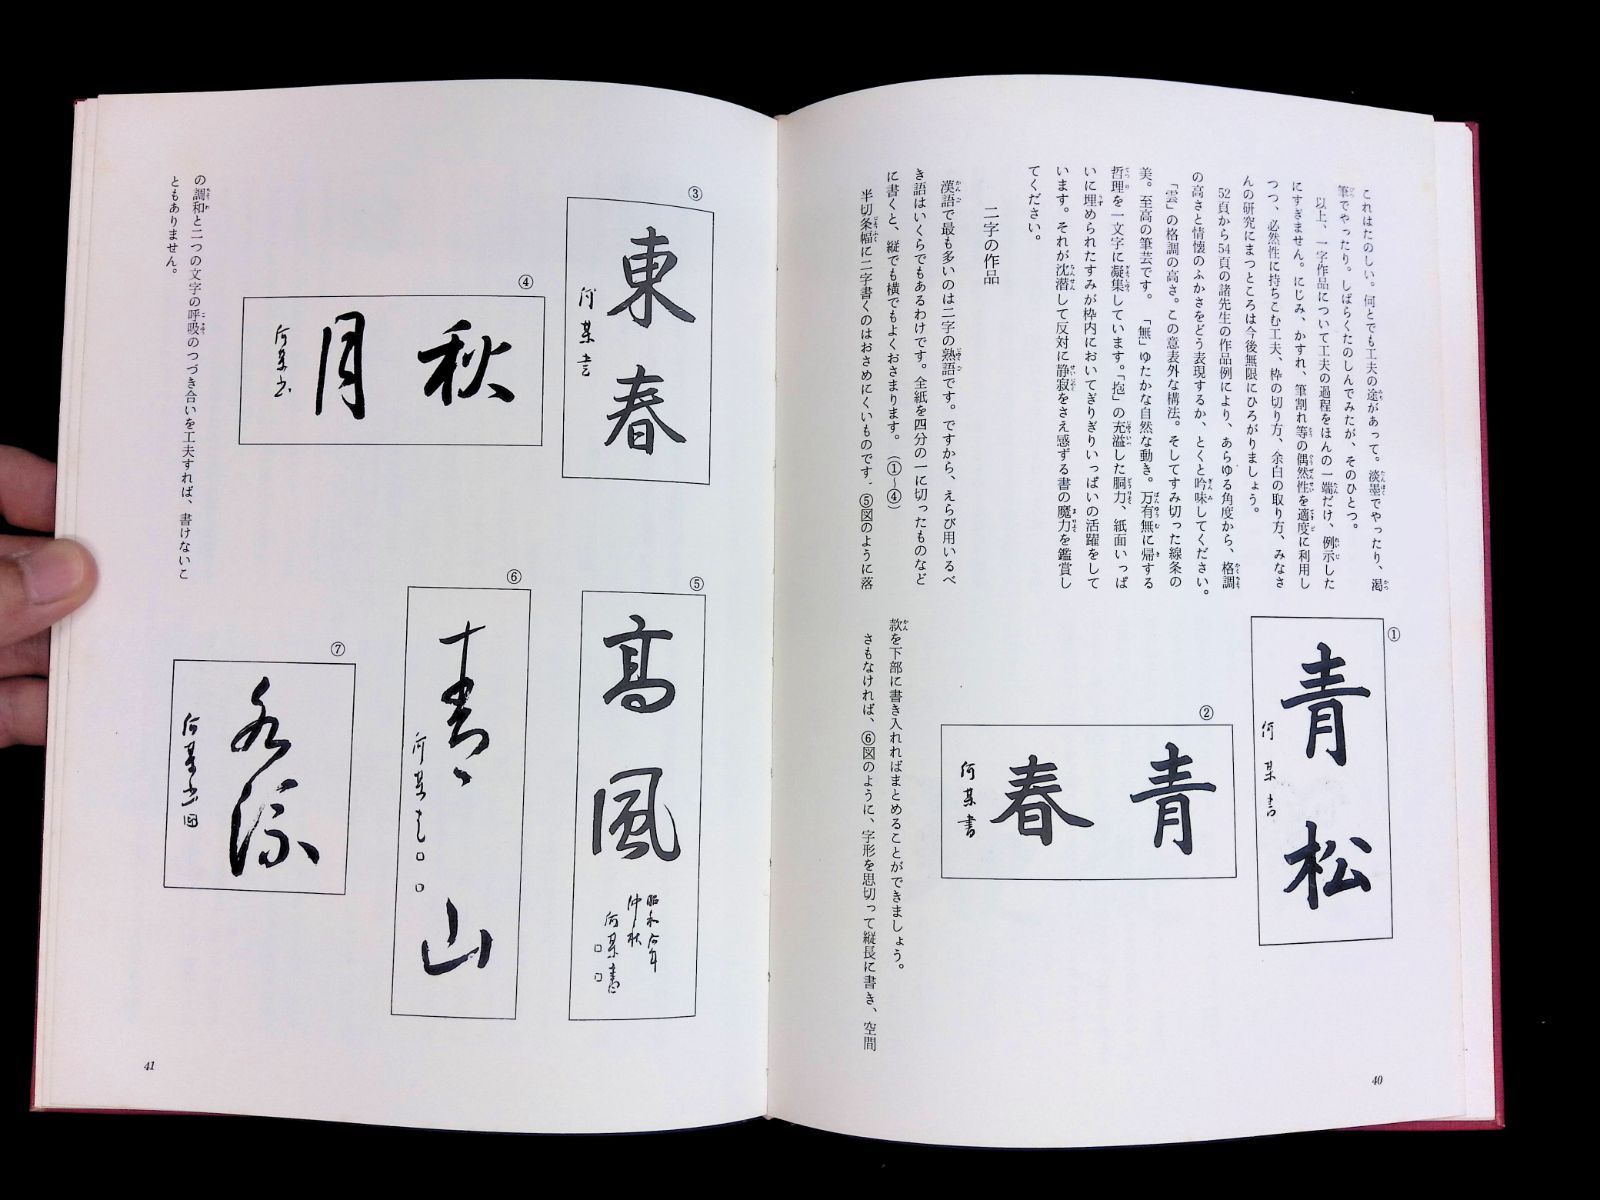 これはたのしい。何とでも工夫の途があって。淡墨でやったり、渇
筆でやったり。しばらくたのしんでみたが、そのひとつ。
以上、一字作品について工夫の過程をほんの一端だけ、例示した
にすぎません。にじみ、かすれ、筆割れ等の偶然性を適度に利用し
つつ、必然性に持ちこむ工夫、枠の切り方、余白の取り方、みなさ
んの研究にまつところは今後無限にひろがりましょう。
52頁から54頁の諸先生の作品例により、あらゆる角度から、格調
の高さと情懐のふかさをどう表現するか、とくと吟味してください。
「雲」の格調の高さ。この意表外な構法。そしてすみ切った線条の
美。至高の筆芸です。「無」ゆたかな自然な動き。万有無に帰する
哲理を一文字に凝集しています。「抱」の充溢した胴力、紙面いっぱ
いに埋められたすみが枠内においてぎりぎりいっぱいの活躍をして
います。それが沈潜して反対に静寂をさえ感ずる書の魔力を鑑賞し
てください。
二字の作品
漢語で最も多いのは二字の熟語です。ですから、えらび用いるべ
き語はいくらでもあるわけです。全紙を四分の一に切ったものなど
に書くと、縦でも横でもよくおさまります。(①〜④)
半切条幅に二字書くのはおさめにくいものです。⑤図のように落
款を下部に書き入れればまとめることができましょう。
さもなければ、⑥図のように、字形を思切って縦長に書き、空間
①
青松
何某書
②
青春
何某書
40
③
東春
何某書
④
秋月
何某書
⑤
高風
仲秋
何某書
⑥
青山
何某書
⑦
何某書
の調和と二つの文字の呼吸のつづき合いを工夫すれば、書けないこ
ともありません。
41